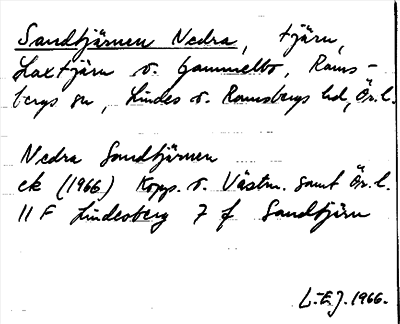 Sandtjärnen Nedra, tjärn,
Laxtjärn o. Gammelbo, Rams-
bergs sn, Lindes o. Ramsbergs hd, Ör. l.
Nedra Sandtjärnen
ek (1966) Kopp. o. Västm. samt Ör. l.
11 F Lindesberg 7 f Sandtjärn
L.-E. J. 1966.